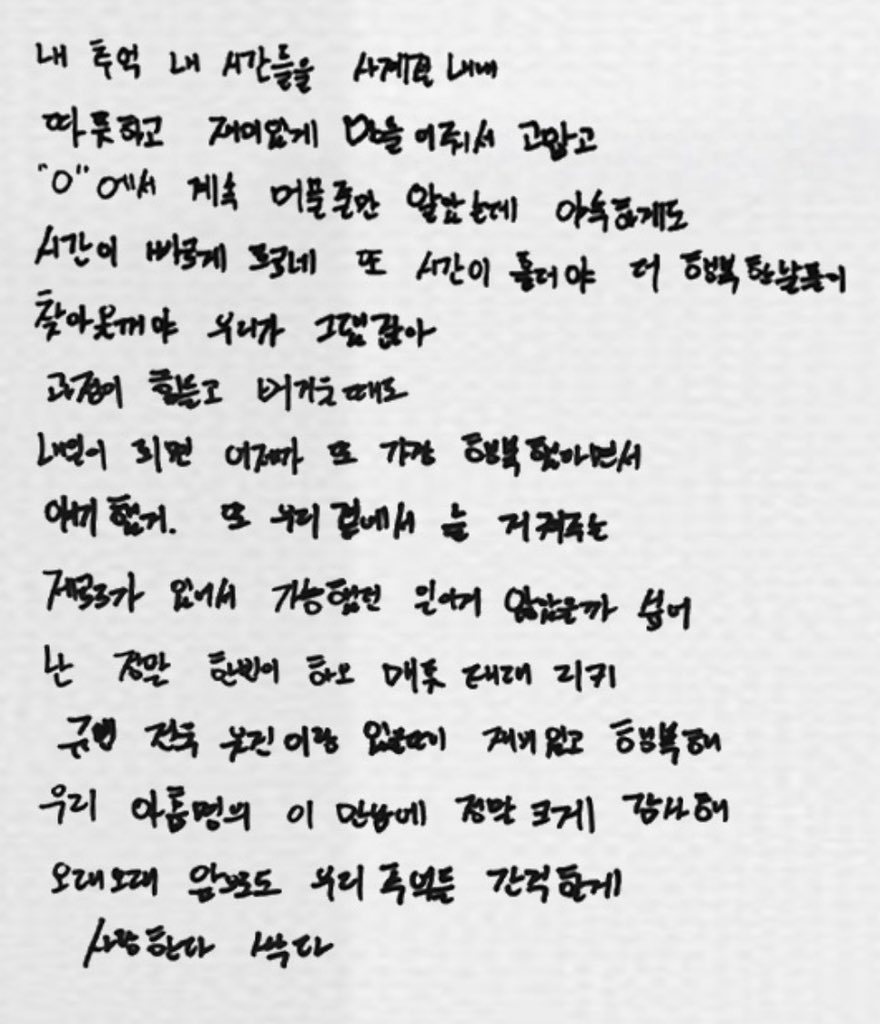 내 추억 내 시간들을 사계절 내내
따뜻하고 재미있게 만들어줘서 고맙고
"0"에서 계속 머물줄만 알았는데 야속하게도
시간이 빠르게 흐르네 또 시간이 흘러야 더 행복한날들이
찾아올꺼야 우리가 그랬잖아
과정이 힘들고 버거울때도
내년이 되면 이제까 또 가장 행복했다면서
얘기했지. 또 우리 곁에서 늘 지켜주는
제로즈가 있어서 가능했던 일이지 않았을까 싶어
난 정말 한빈이 하오 매튜 태래 리키
규빈 건욱 유진이랑 있을때가 재미있고 행복해
우리 아홉명의 이 만남에 정말 크게 감사해
오래오래 앞으로도 우리 추억들 간직할게
사랑한다 싹다